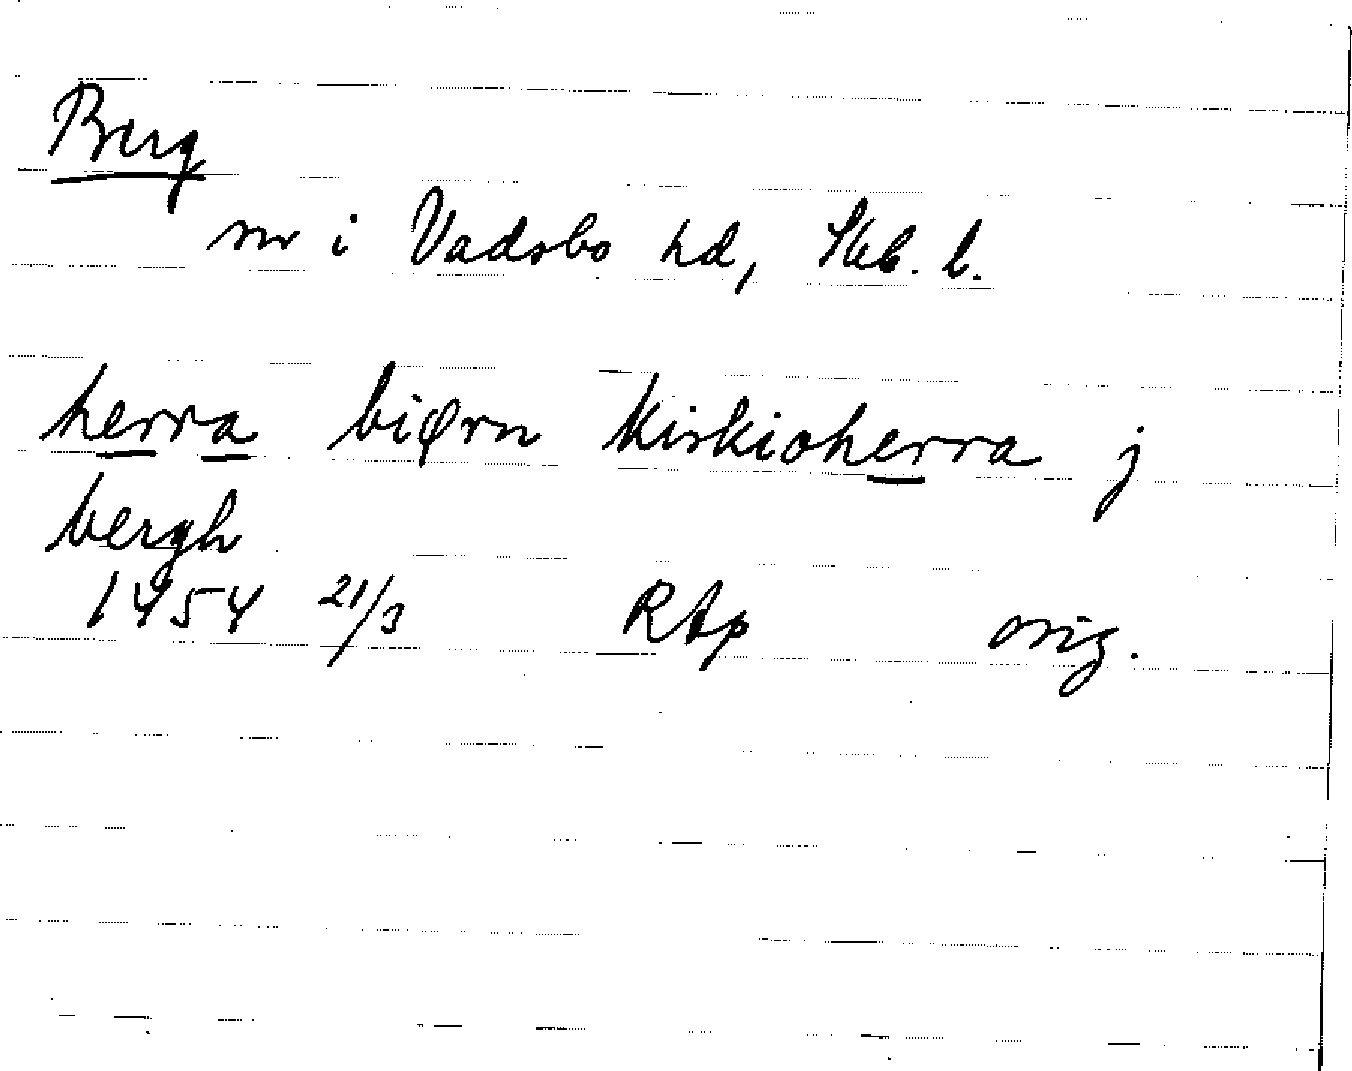 Berg
sn i Vadsbo hd, Skb. l.
herra biørn kirkioherra j
bergh
1454 21/3 RAp orig.